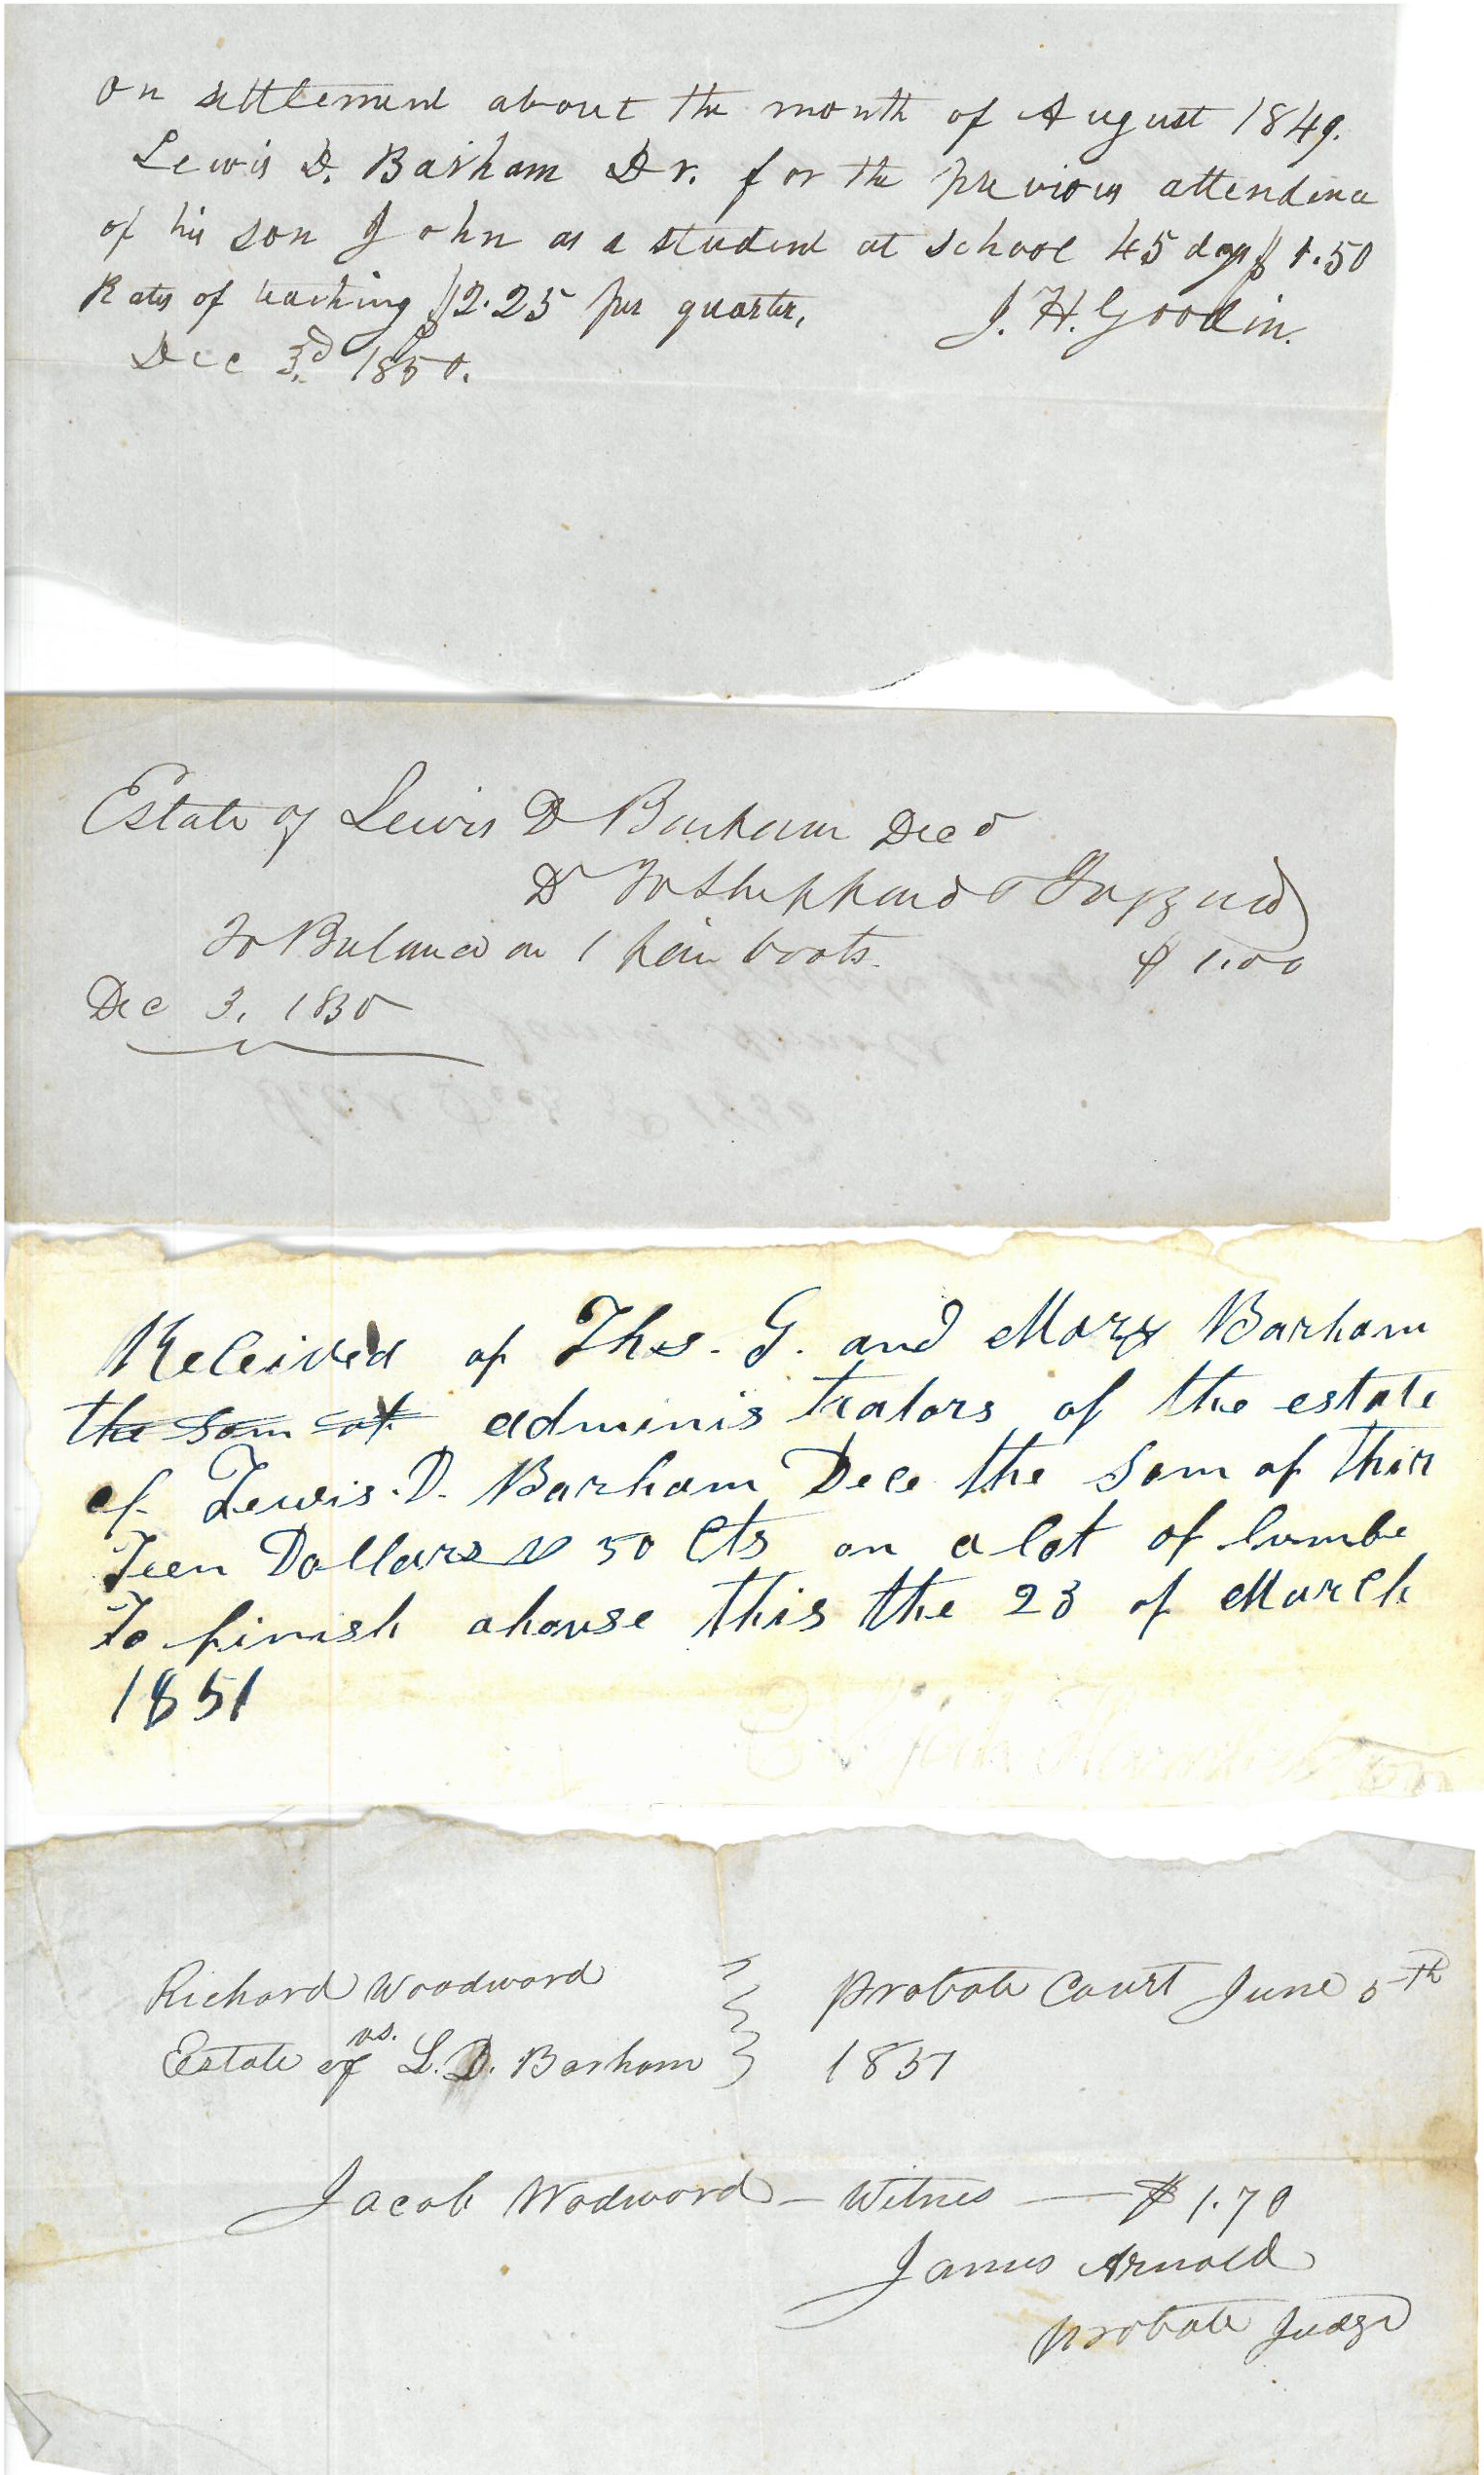 on settlement about the month of August 1849.
Lewis D. Barham Dr. for the previous attendence
of his son John as a student at school 45 days $1.50
Rates of teaching $2.25 per quarter,
J. H. Goodin.
Dec 3d. 1850.
Estate of Lewis D Barham Decd
Dr To Sheppard &
To Balance on 1 pair boots. $1.00
Dec 3, 1850
Received of Ths. G. and Mary Barham
the som of administrators of the estate
of Lewis. D. Barham Dece the Som of thir
Teen Dollars & 50 Cts on a lot of lumbe
To finish ahouse this the 23 of March
1851
Richard Woodword
vs.
Estate of L. D. Barham
Probate Court June 5th
1851
Jacob Wodword - Witnes - $1.70
James Arnold
Probate Judge